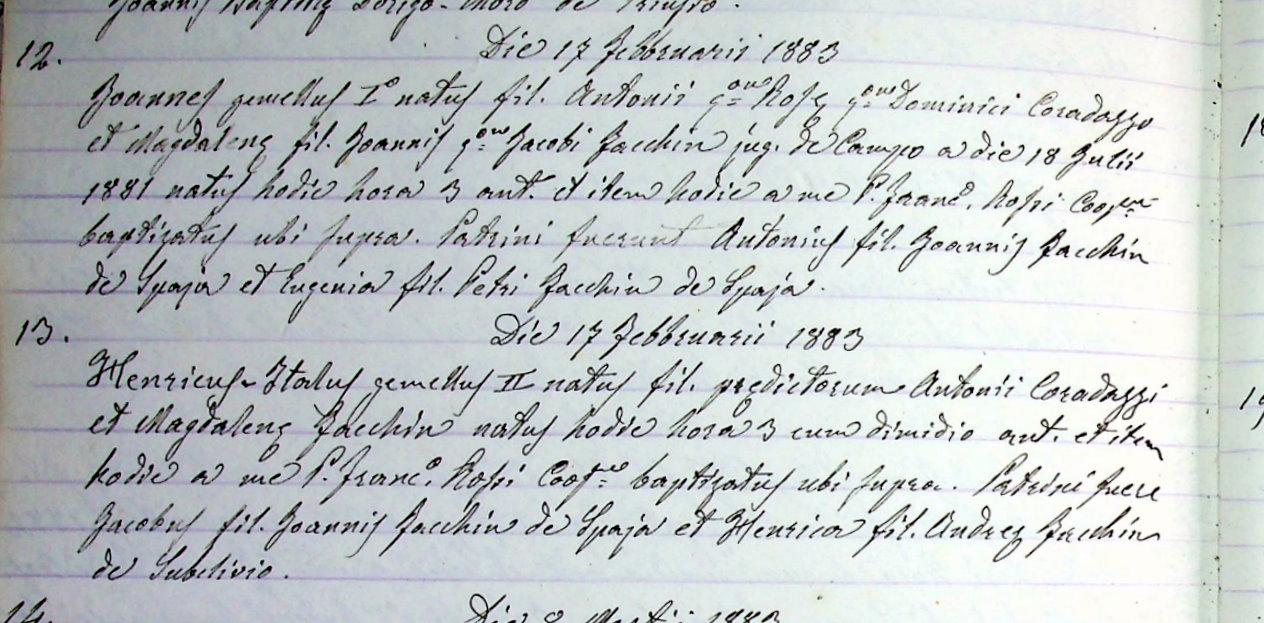 Joannis Baptistę Dorigo-Moro de
12. Die 17 Febbruarii 1883
Joannes gemellus I° natus fil. Antonii q.m Rosę q.m Dominici Coradazzo
et Magdalenę fil. Joannis q.m Jacobi Zacchin jug. de Campo a die 18 Julii
1881 natus hodie hora 3 ant. et item hodie a me P. Franc°. Rossi Coop.re
baptizatus ubi supra. Patrini fuerunt Antonius fil. Joannis Zacchin
de Spaja et Eugenia fil. Petri Zacchin de Spaja.
13. Die 17 Febbruarii 1883
Henricus-Italus gemellus II natus fil. prędictorum Antonii Coradazzi
et Magdalenę Zacchin natus hodie hora 3 cum dimidio ant. et item
hodie a me P. Franc°. Rossi Coop.re baptizatus ubi supra. Patrini fuere
Jacobus fil. Joannis Zacchin de Spaja et Henrica fil. Andreę Zacchin
de Subclivio.
14. Die 8 Martii 1883